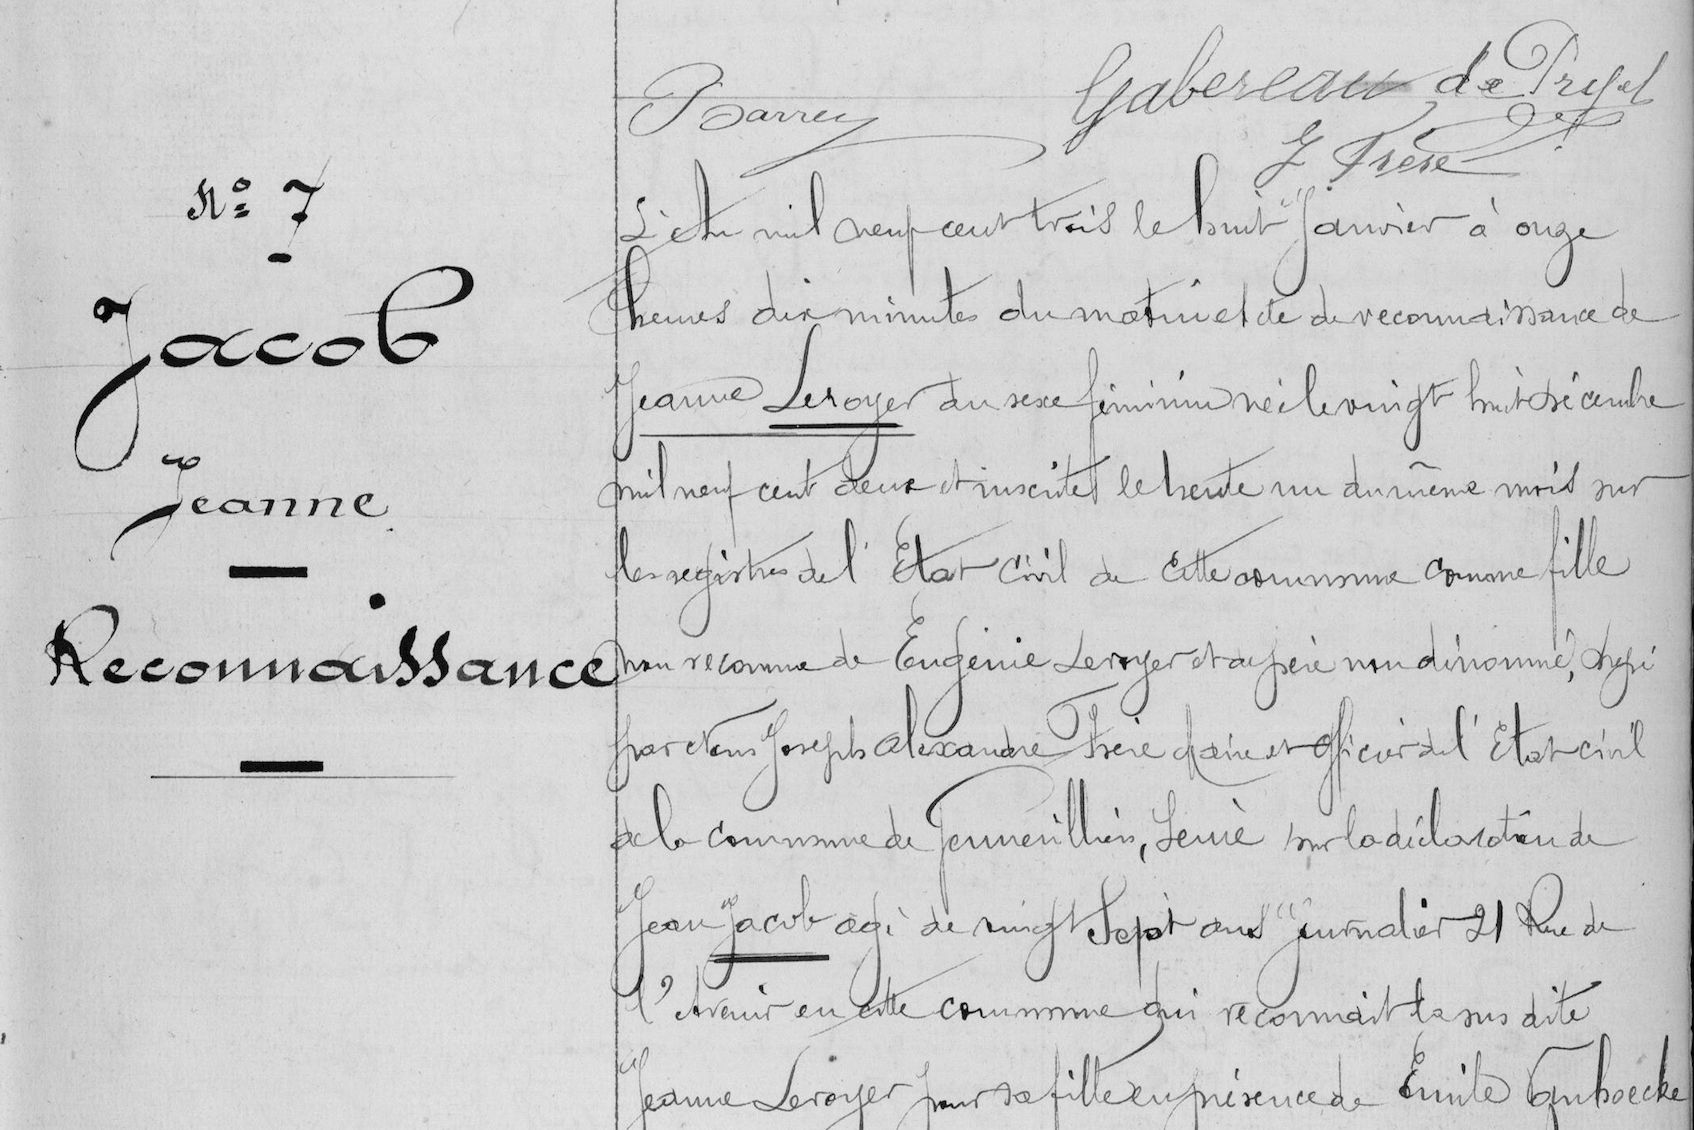 Barrey
Gabereau de
J Frère
No 7
Jacob
Jeanne
Reconnaissance
L'An mil neuf cent trois le huit Janvier à onze
heures dix minutes du matin Acte de reconnaissance de
Jeanne Leroyer du sexe féminin née le vingt huit décembre
mil neuf cent deux et inscrite le trente un du même mois sur
les registres de l'Etat civil de cette commune comme fille
non reconnue de Eugénie Leroyer et de père non dénommé, dressé
par nous Joseph Alexandre Frère Maire et Officier de l'Etat civil
de la commune de Gennevilliers, Seine sur la déclaration de
Jean Jacob agé de vingt Sept ans Journalier 21 Rue de
l'Avenir en cette commune qui reconnait la sus dite
Jeanne Leroyer pour sa fille en présence de Emile